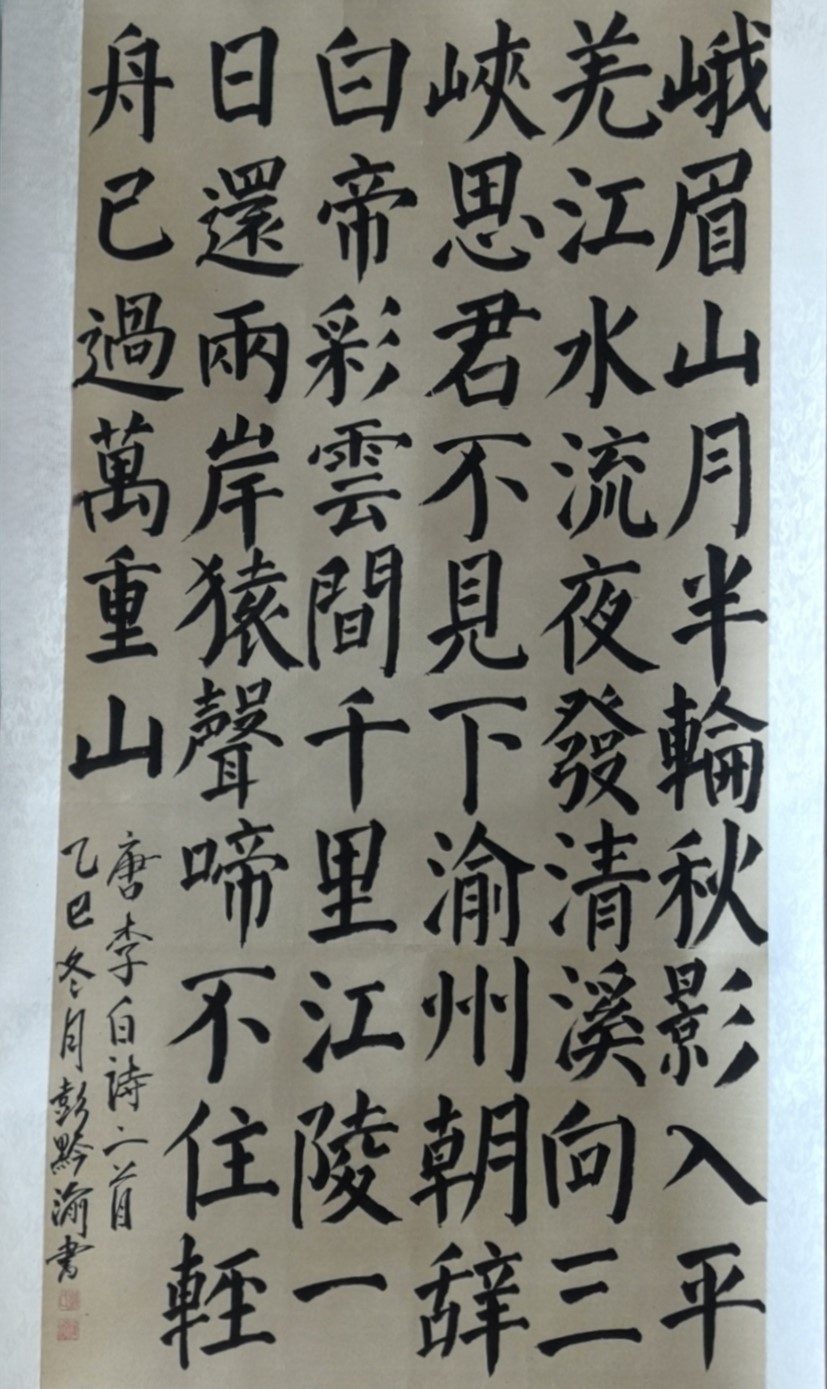 峨眉山月半輪秋影入平
羌江水流夜發清溪向三
峽思君不見下渝州朝辞
白帝彩雲間千里江陵一
日還兩岸猿聲啼不住軽
舟已過萬重山
唐李白詩二首
乙巳冬月彭黔渝書